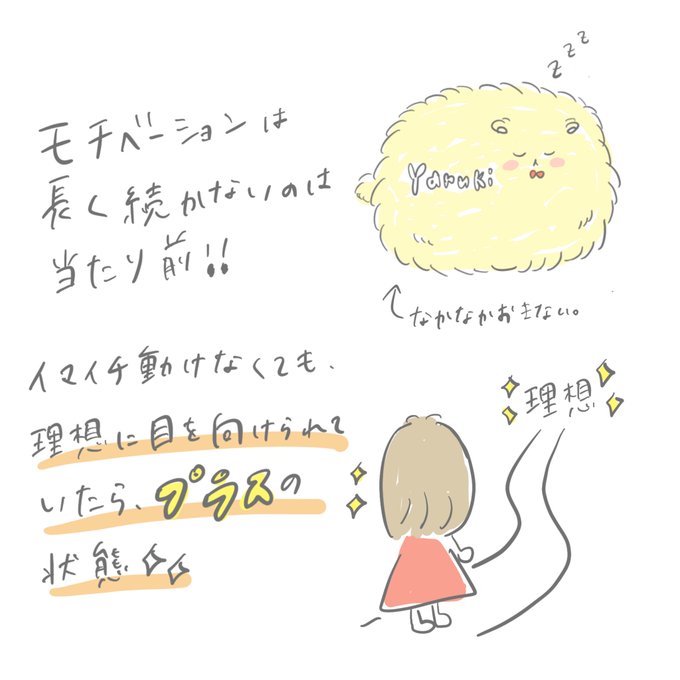 モチベーションは
長く続かないのは
当たり前!!
zzz
Yaruki
なかなかおきない。
イマイチ動けなくても、
理想に目を向けられて
いたら、プラスの
状態
理想